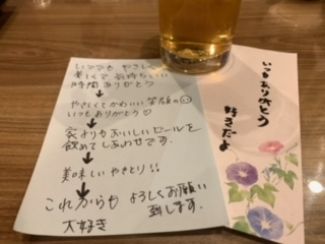 いつでも やさしく
楽しくて 気持ちいい
時間ありがとう
↓
やさしくてかわいい 笑顔の☺
いつもありがとう♡
↓
家よりもおいしいビールを
飲めてしあわせです。
↓
美味しいやきとり!!
↓
これからも よろしくお願い
致します。
大好き
いつもありがとう
好きだよ